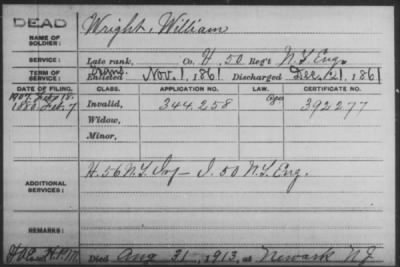 DEAD
NAME OF SOLDIER: Wright, William
SERVICE: Late rank, Co. H, 50 Reg't N.Y. Eng.
TERM OF SERVICE: Enlisted Nov. 1, 1861 Discharged Dec. 21, 1861
DATE OF FILING. CLASS. APPLICATION NO. LAW. CERTIFICATE NO.
1880 Feb. 7 Invalid, 344.258 392277
Widow,
Minor,
ADDITIONAL SERVICES: H. 56 N.Y. Inf — I. 50 N.Y. Eng.
REMARKS:
Died Aug 31, 1913, at Newark NJ